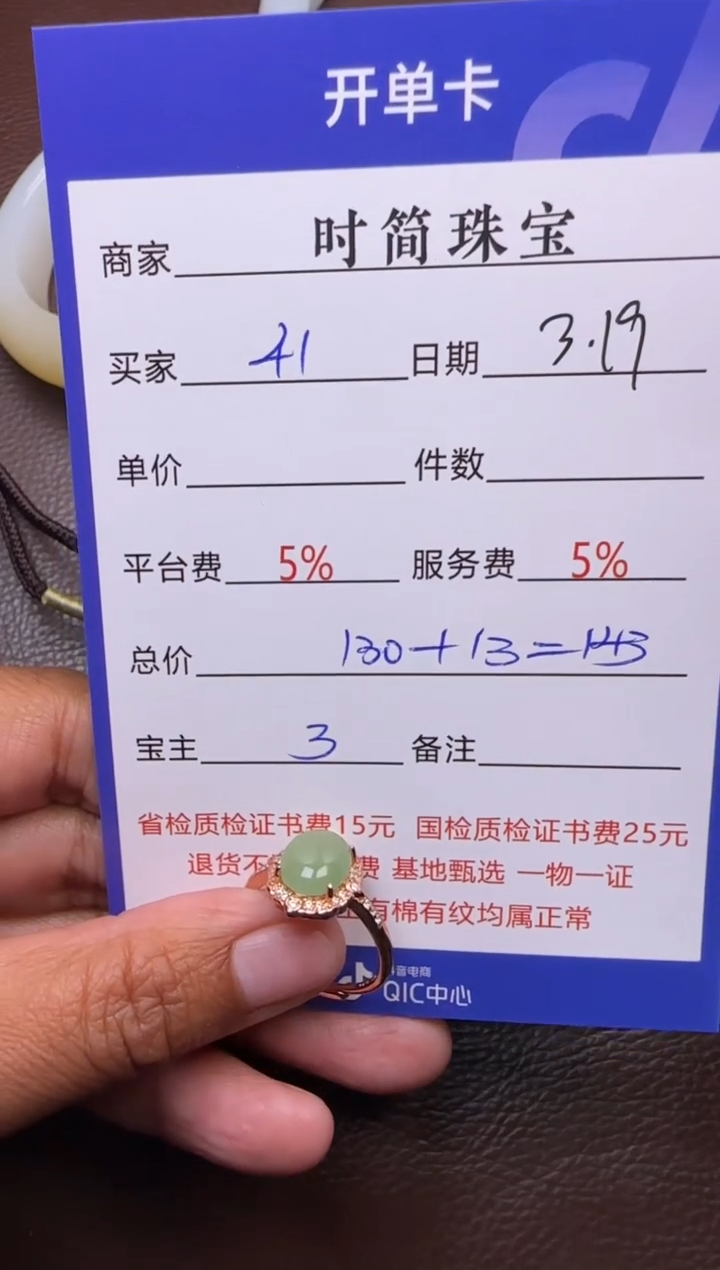 开单卡
商家 时简珠宝
买家 41 日期 3.19
单价 件数
平台费 5% 服务费 5%
总价 130+13=143
宝主 3 备注
省检质检证书费15元 国检质检证书费25元
退货不 费 基地甄选 一物一证
有棉有纹均属正常
音电商
QIC中心